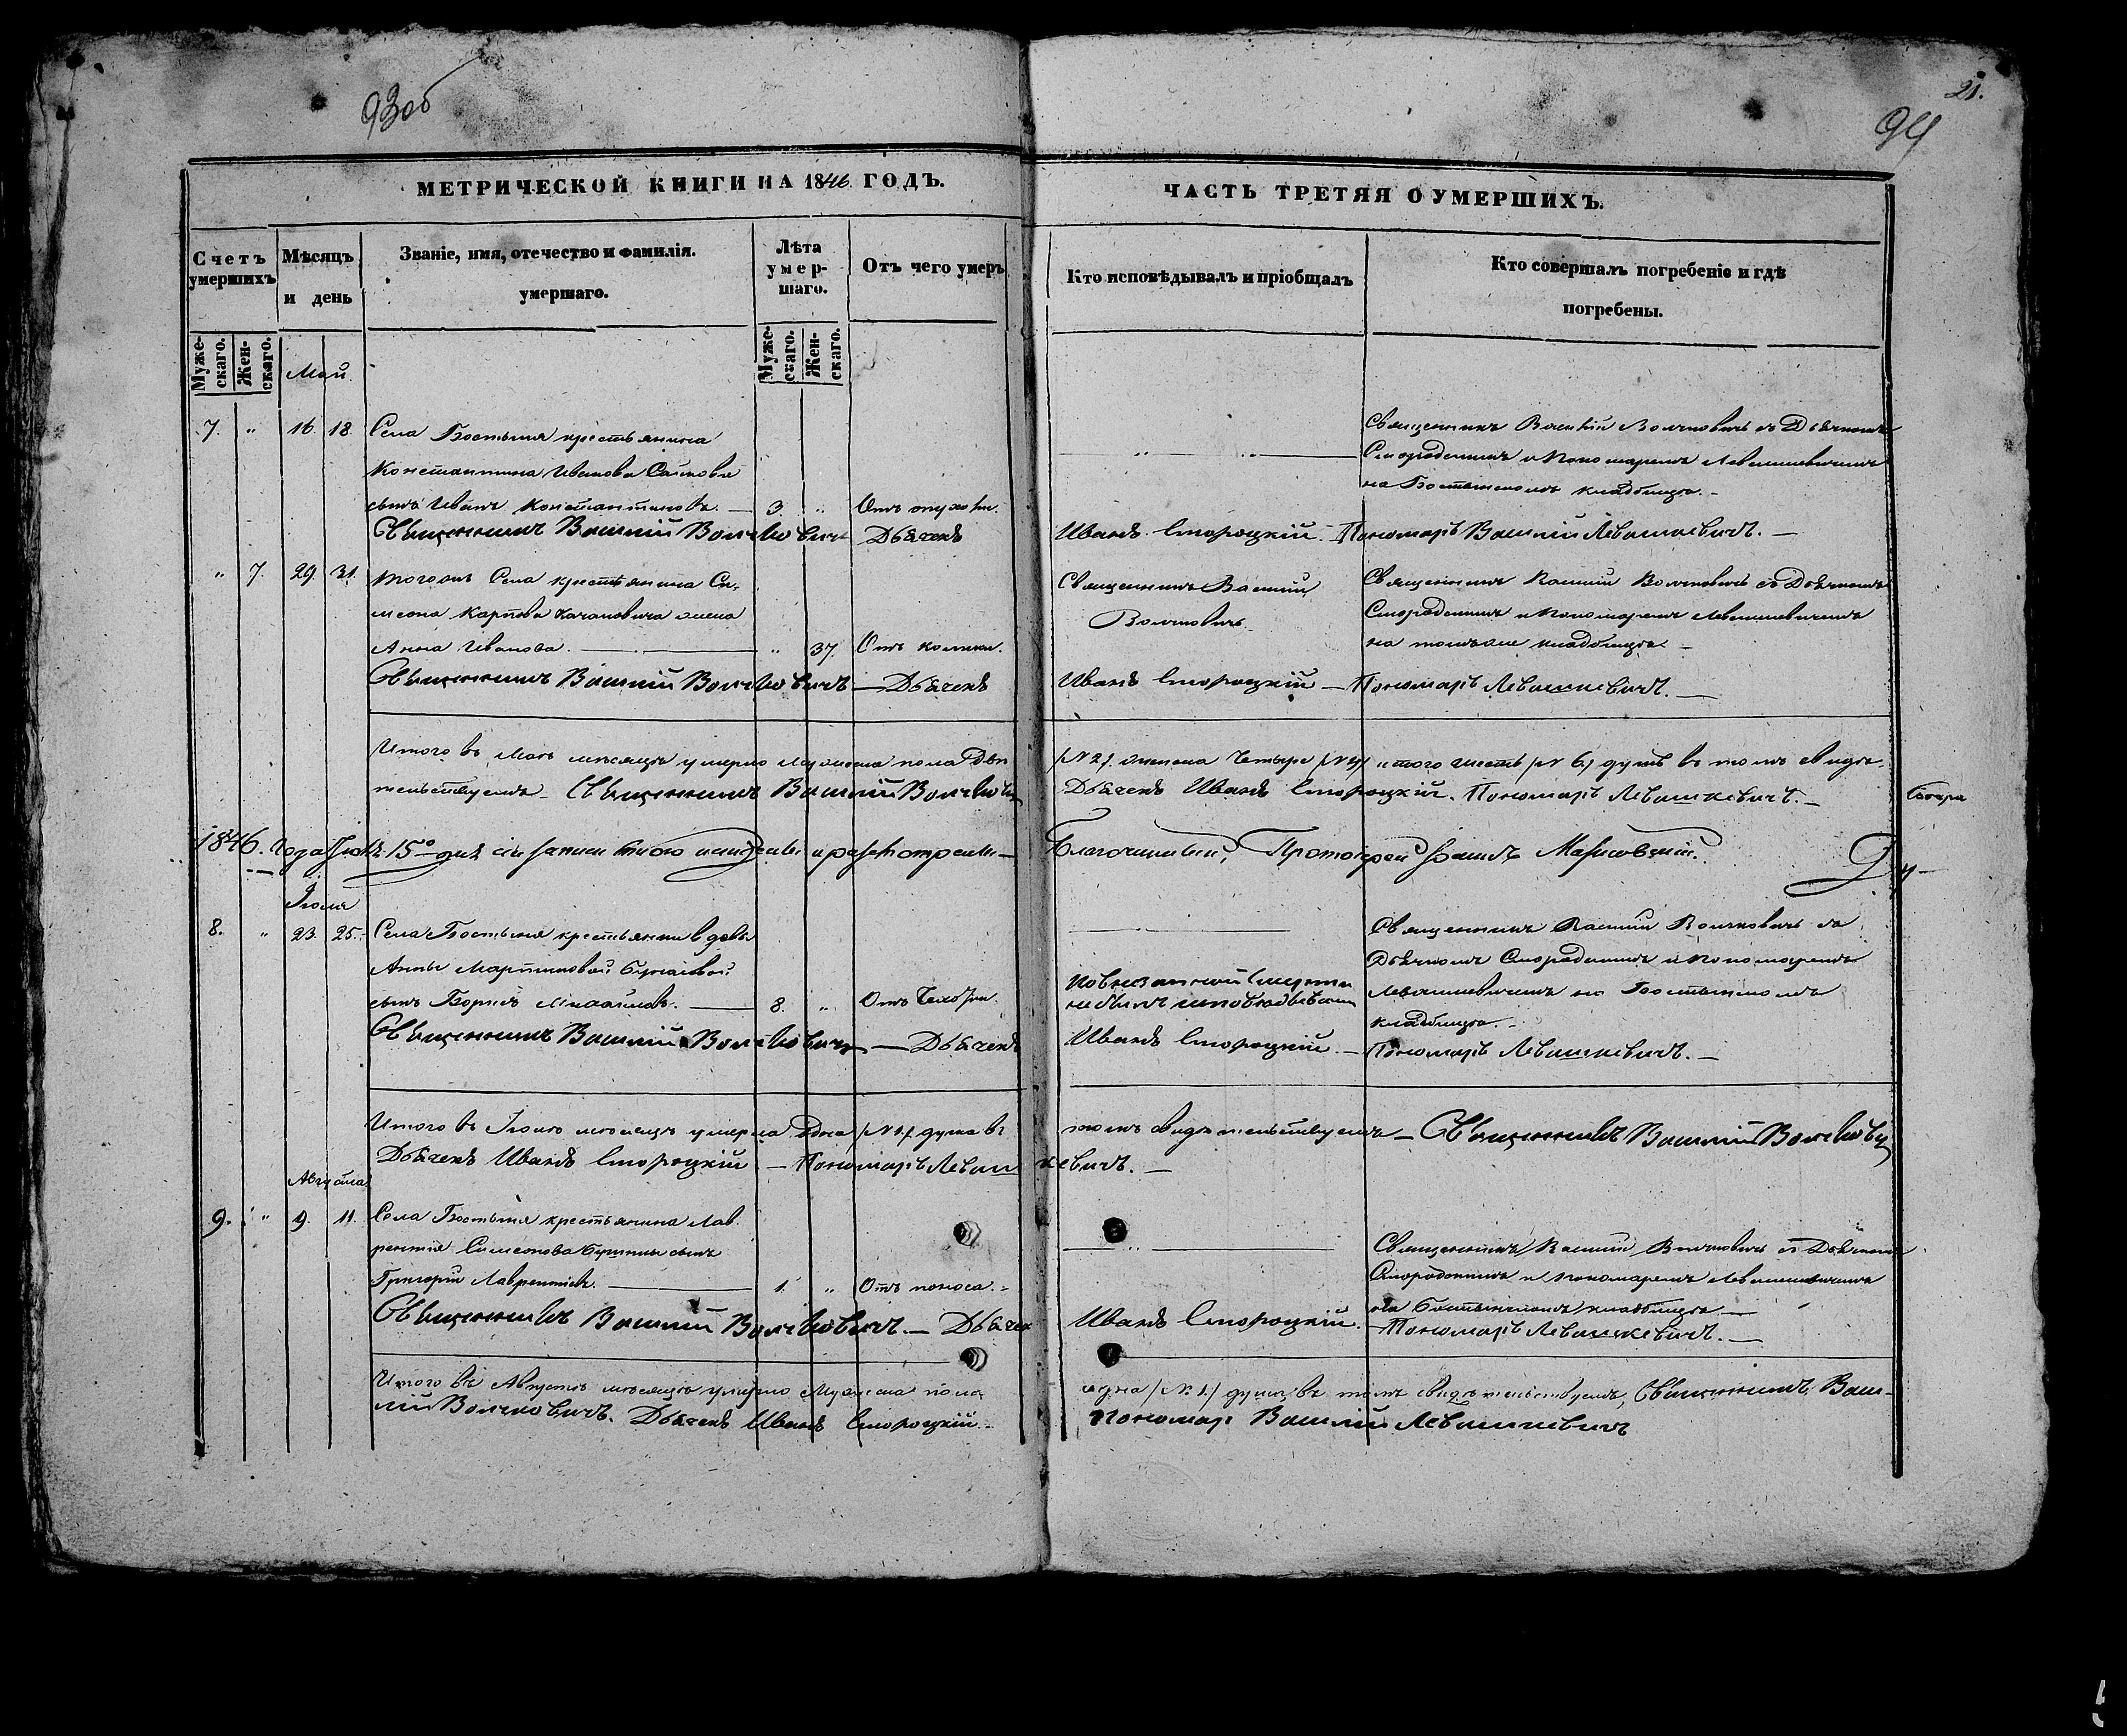 93об
21.
94
МЕТРИЧЕСКОЙ КНИГИ НА 1846 ГОДЪ.
Счетъ умершихъ
Мѣсяцъ и день
Званіе, имя, отечество и фамилія.
умершаго.
Лѣта умер-
шаго.
Отъ чего умеръ
Муже-
скаго.
Жен-
скаго.
Муже-
скаго.
Жен-
скаго.
Май.
7. " 16. 18. Села Бостыня крестьянина
Константина Иванова
сынъ Иванъ Константиновъ. — 3. " Отъ опухоли.
Священникъ Василій Волчковичъ Дьячекъ
" 7. 29. 31. тогожъ Села крестьянина Си-
меона Карпова Качановича жена
Анна Иванова. — " 37.
Священникъ Василій Волчковичъ — Дьячекъ
Итого въ Маѣ мѣсяцѣ умерло мужеска пола два
тельствуемъ — Священникъ Василій Волчковичъ
1846. Года
Іюля
8. " 23. 25. Села Бостыня крестьянки вдовы
Анны Мартиновой
сынъ Борисъ Михайловъ. — 8. "
Священникъ Василій Волчковичъ — Дьячекъ
Итого въ Іюлѣ мѣсяцѣ умерла одна /№ 1./ душа въ
Дьячекъ Иванъ Смородскій — Пономарь Леваш
Августа
9. " 9. 11. Села Бостыня крестьянина Лав-
рентія Симеонова сынъ
Григорій Лаврентіевъ. — 1. " Отъ поноса.
Священникъ Василій Волчковичъ. — Дьячек
Итого въ Августѣ мѣсяцѣ умерло Мужеска пола
лій Волчковичъ. Дьячекъ Иванъ Смородскій.
ЧАСТЬ ТРЕТЯЯ О УМЕРШИХЪ.
Кто исповѣдывалъ и пріобщалъ
Кто совершалъ погребеніе и гдѣ
погребены.
Священникъ Василій Волчковичъ съ Дьячкомъ
и Пономаремъ Левашкевичемъ
на Бостынскомъ кладбищѣ. —
Иванъ Смородскій. Пономарь Василій Левашкевичъ. —
Священникъ Василій
Волчковичъ
Священникъ Василій Волчковичъ съ Дьячкомъ
и Пономаремъ Левашкевичемъ
на томъже кладбищѣ —
Иванъ Смородскій — Пономарь Левашкевичъ. —
/№ 2/. женска четыре /№ 4/ итого шесть /№ 6/ душъ въ томъ свидѣ-
Дьячекъ Иванъ Смородскій. Пономарь Левашкевичъ. —
Благочинный, Протоіерей
Священникъ Василій Волчковичъ съ
Дьячкомъ и Пономаремъ
Левашкевичемъ на Бостынскомъ
кладбищѣ. —
небылъ исповѣдыванъ
Иванъ Смородскій. — Пономарь Левашкевичъ. —
томъ свидѣтельствуемъ — Священникъ Василій Волчковичъ
кевичъ. —
Священникъ Василій Волчковичъ съ Дьячкомъ
и Пономаремъ Левашкевичемъ
на Бостынскомъ кладбищѣ. —
Иванъ Смородскій. — Пономарь Левашкевичъ. —
одна /№ 1./ душа, въ томъ свидѣтельствуемъ, Священникъ Васи-
Пономарь Василій Левашкевичъ